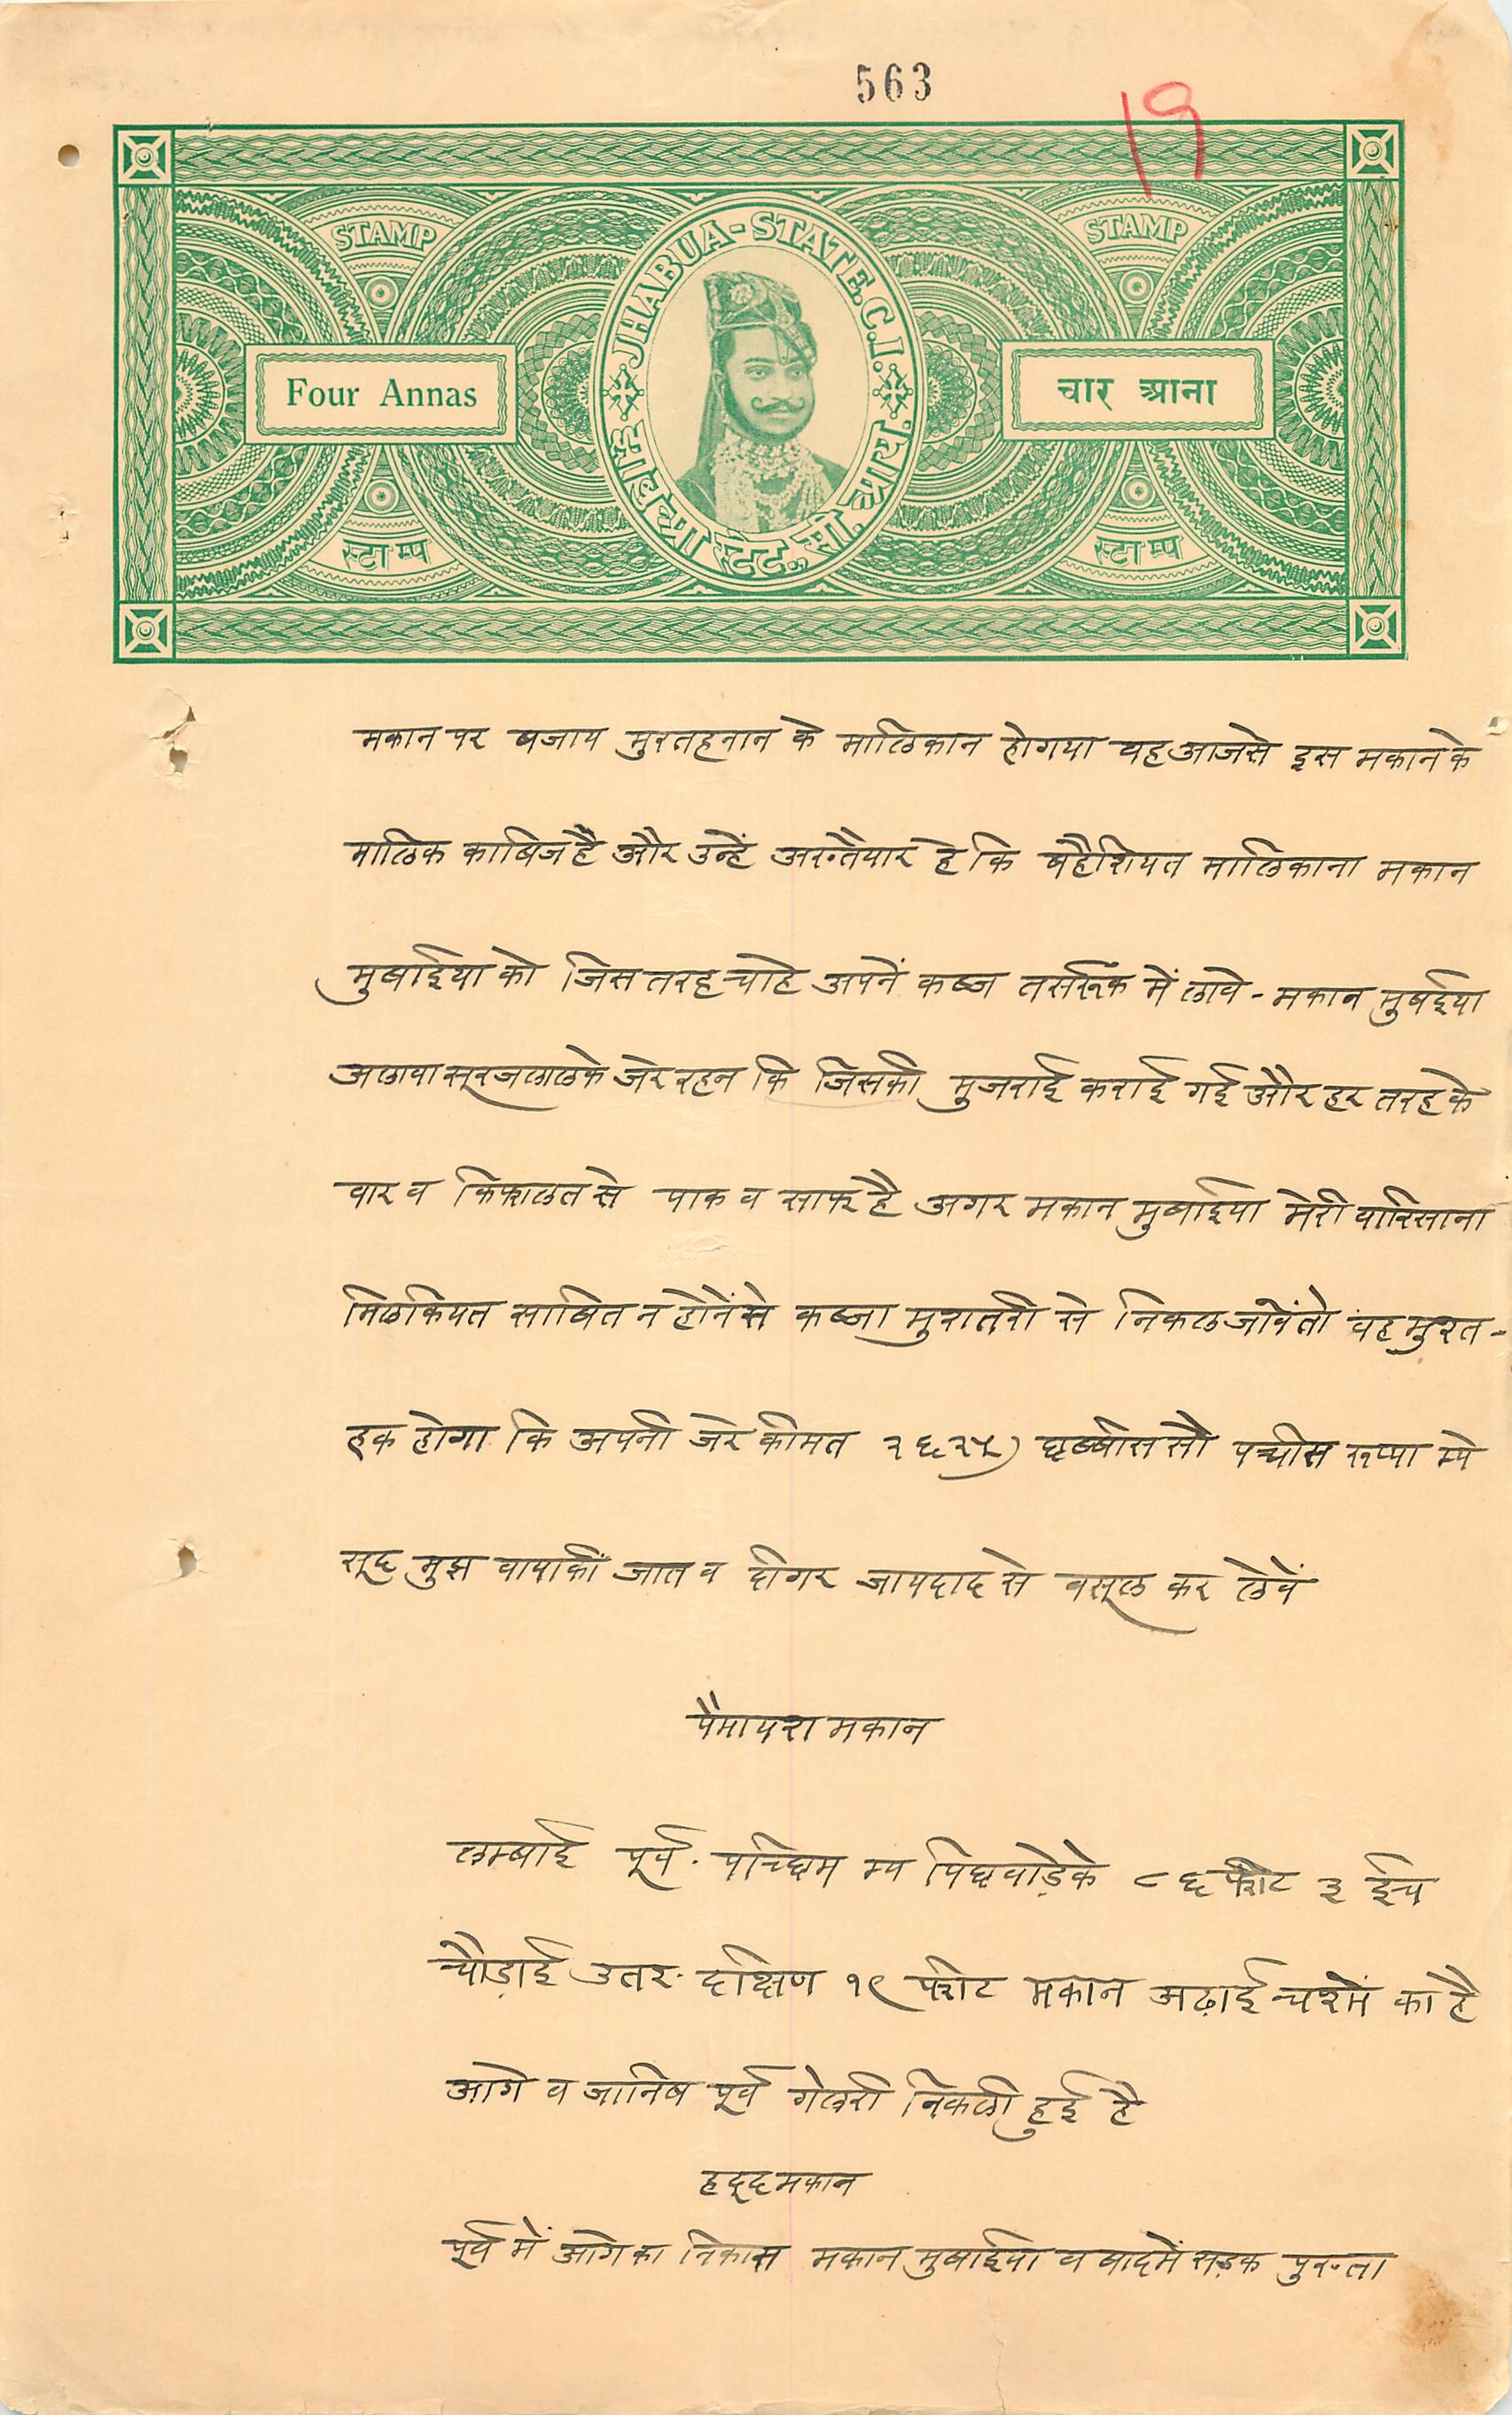 563
19
STAMP
STAMP
JHABUA-STATE.C.I.
Four Annas
चार आना
झाबुआ स्टेट सी. आय.
स्टाम्प
स्टाम्प
मकान पर बजाय मुरतहनान के मालिकान होगया वह आजसे इस मकान के
मालिक काबिज है और उन्हें अख्तैयार हे कि बहैशियत मालिकाना मकान
मुबाईया को जिस तरह चाहे अपनें कब्ज तर्सरूफ में लावे - मकान मुबईया
अलावा सूरजलालके जेर रहन कि जिसकी मुजराई कराई गई और हर तरह के
बार व किफालत से पाक व साफ है अगर मकान मुबाईया मेरी वारिसाना
मिलकियत साबित न होनेंसे कब्जा मुशतरी से निकल जावें तो वह मुस्त-
हक होगा कि अपनी जेरे कीमत २६२५) छब्बीस सौ पच्चीस रूप्पा म्ये
सूद मुझ बायाकी जात व दीगर जायदाद से वसूल कर लेवें
पैमायश मकान
लम्बाई पूर्व. पच्छिम म्य पिछवाड़ेके ८६ फीट ३ ईंच
चौड़ाई उतर. दक्षिण १९ फीट मकान अढ़ाई चश्में का है
आगे व जानिब पूर्व गेलरी निकली हुई है
हद्द मकान
पूर्व में आगे का निकास मकान मुबाईया व बादमें सड़क पुख्ता